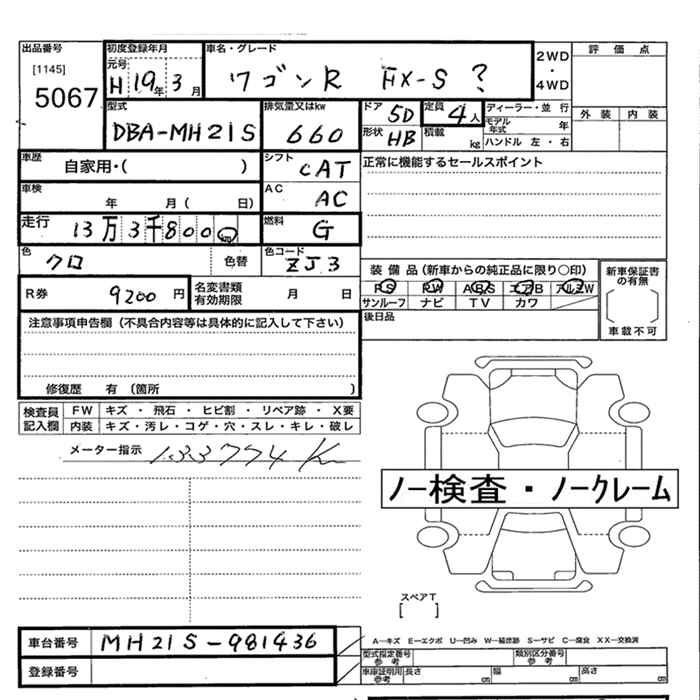 出品番号
[1145]
5067
初度登録年月
元号
H 19年3月
車名・グレード
ワゴンR FX-S ?
2WD
・
4WD
評価点
外装 内装
型式
DBA-MH21S
排気量又はkw
660
ドア
5D
形状
HB
定員
4人
積載
kg
ディーラー・並行
モデル年式 年
ハンドル 左・右
車歴
自家用・( )
シフト
CAT
正常に機能するセールスポイント
車検
年 月( 日)
AC
AC
走行
13万3千800km
燃料
G
色
クロ
色替
色コード
ZJ3
装備品(新車からの純正品に限り○印)
PS PW ABS エアB アルミW
サンルーフ ナビ TV カワ
新車保証書の有無
車載不可
R券
9200円
名変書類有効期限
月 日
後日品
注意事項申告欄(不具合内容等は具体的に記入して下さい)
修復歴 有(箇所 )
検査員記入欄
FW キズ・飛石・ヒビ割・リペア跡・X要
内装 キズ・汚レ・コゲ・穴・スレ・キレ・破レ
メーター指示 133774K
ノー検査・ノークレーム
スペアT
[ ]
車台番号
MH21S-981436
登録番号
A-キズ E-エクボ U-凹み W-補修跡 S-サビ C-腐食 XX-交換済
型式指定番号参考
類別区分番号参考
車庫証明用参考
長さ cm 幅 cm 高さ cm